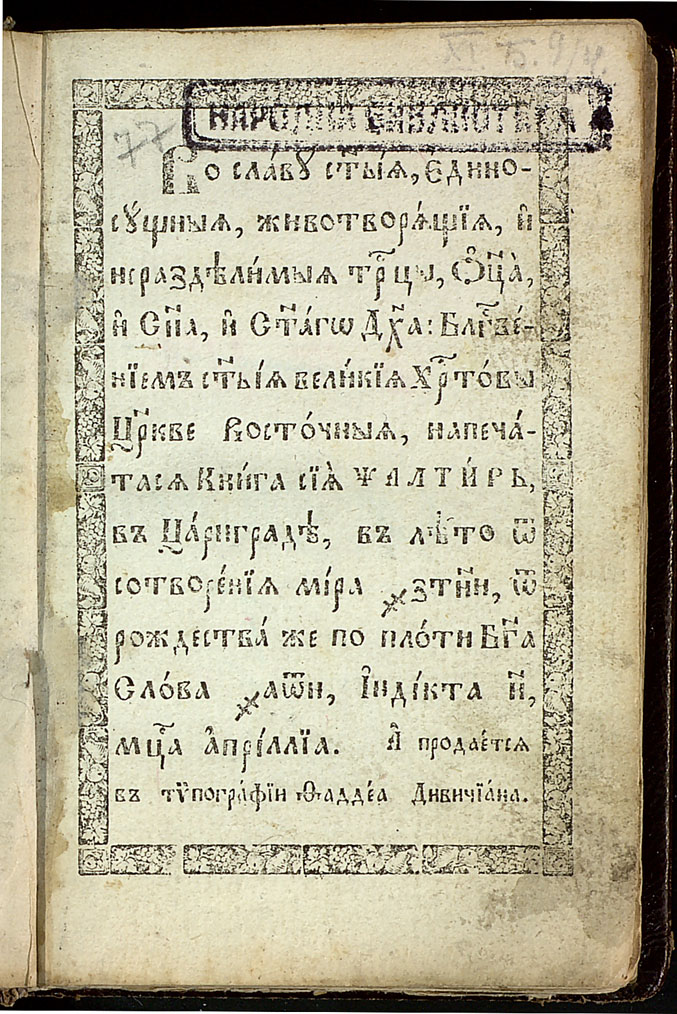 XI Б. 9/4.
НАРОДНА БИБЛИОТЕКА
77
Во сла́вꙋ ст҃ы́ѧ, є҆дино-
сꙋ́щныѧ, животворѧ́щїѧ, и҆
нераздѣли́мыѧ трⷪ҇цы, Ѻ҆ц҃а̀,
и҆ Сн҃а, и҆ Ст҃а́гѡ Дх҃а: Блгⷭ҇ве́-
нїемъ ст҃ы́ѧ вели́кїѧ Хрⷭ҇то́вы
Цр҃кве Восто́чныѧ, напеча́-
тасѧ Кни́га сїѧ̀ ѰАЛТИ́РЬ,
въ Ца́риградѣ, въ лѣ́то ѿ
сотворе́нїѧ мі́ра ҂зтн҃и, ѿ
рождества́ же по пло́ти Бг҃а
Сло́ва ҂аѿ҃н, І҆ндї́кта и҃,
мцⷭ҇а а҆прі́ллїа. А҆ продае́тсѧ
въ тѷпогра́фїи Ѳаддє́а Дивичїа́на.